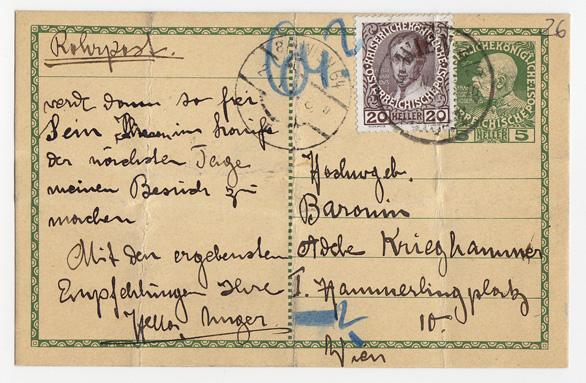 Rohrpost.
26
werde dann so frei
sein im Laufe
der nächsten Tage
meinen Besuch zu
machen
Mit den ergebensten
Empfehlungen Ihre
Unger
KAISERLICHE KÖNIGLICHE
ÖSTERREICHISCHE POST
20 HELLER 20
HELLER 5
Hochwgeb.
Baronin
Adele Krieghammer
I. Hammerlingplatz
10.
2
Wien